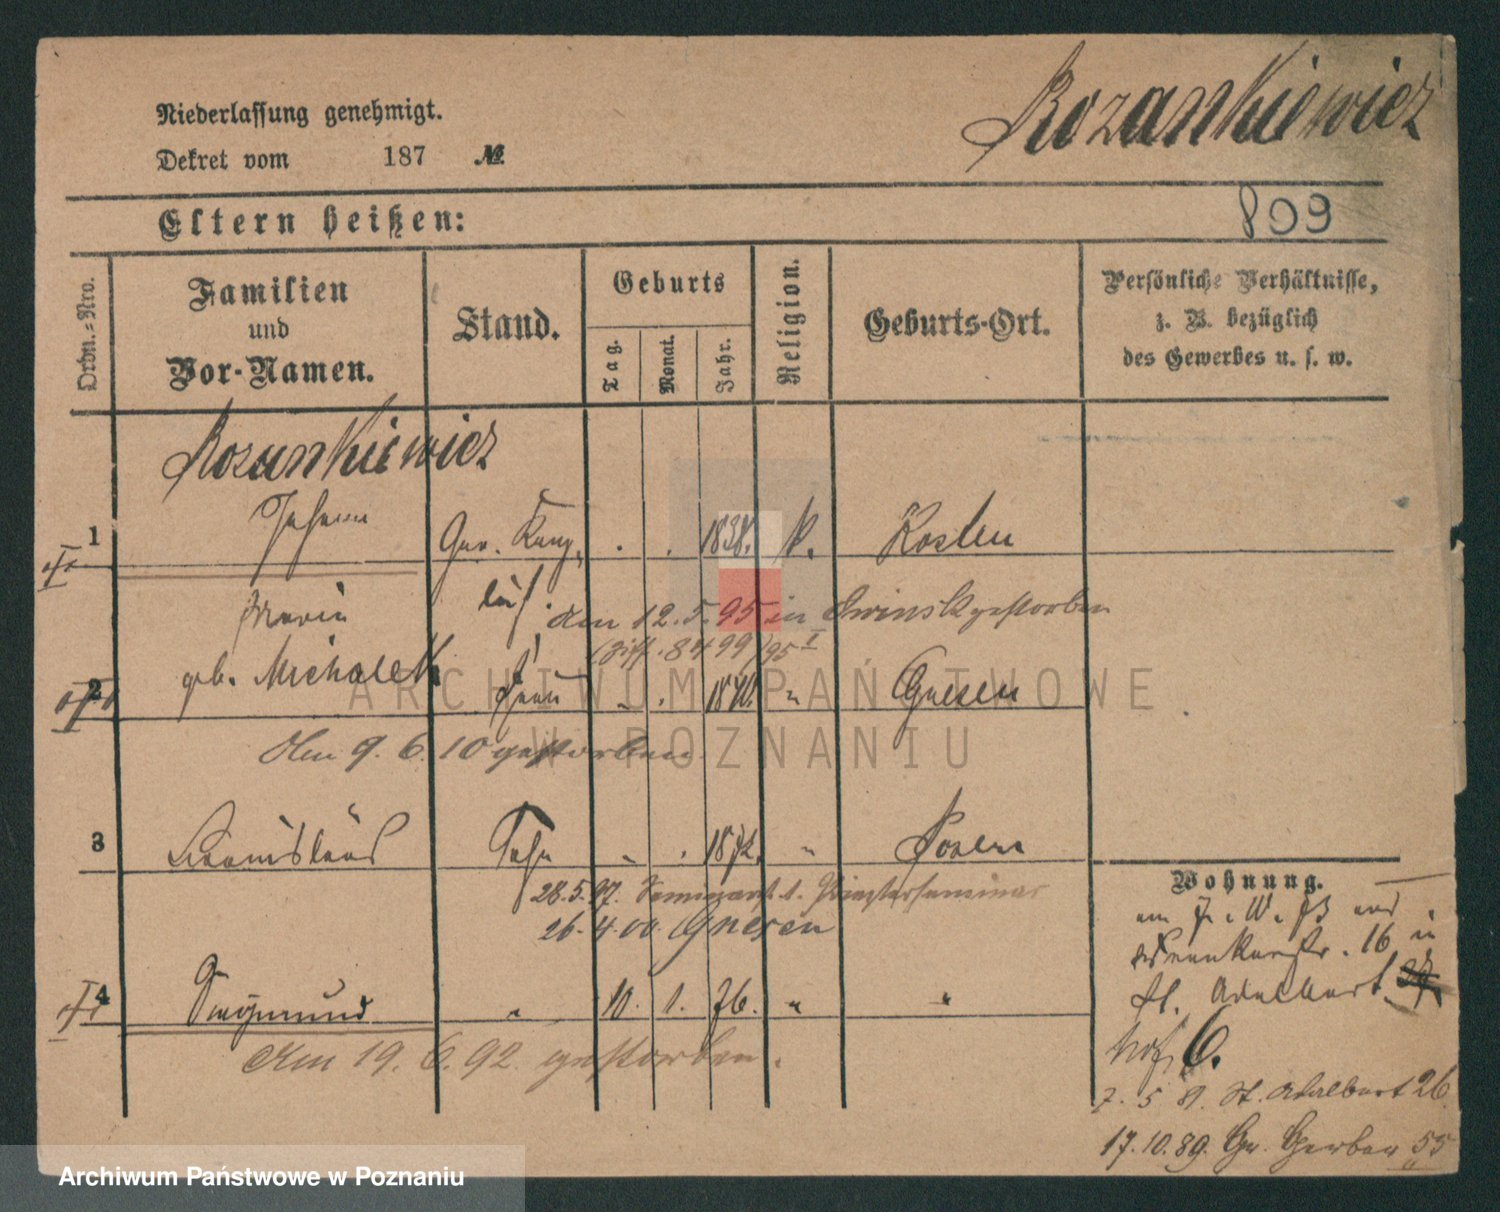 Rozankiewicz
Niederlassung genehmigt.
Dekret vom 187 №
Eltern heißen:
809
Ordn.-Nro.
Familien
und
Vor-Namen.
Stand.
Geburts
Tag.
Monat.
Jahr.
Religion.
Geburts-Ort.
Persönliche Verhältnisse,
z. B. bezüglich
des Gewerbes u. s. w.
Rozankiewicz
1 Johann Ger. Kanz. 1838. k. Kosten
Marie
den 12.5.95 in gestorben
8499/95 I
2 geb. Michalek Frau " 1840. " Gnesen
Am 9. 6. 10 gestorben.
3 Stanislaus Sohn " 1872. " Posen
28.5.97. Priesterseminar
26.4.00. Gnesen
4 Sigmund " 10. 1. 76. " "
Am 19. 6. 92. gestorben.
Wohnung.
16
St. Adalbert
6.
7. 5 81. St. Adalbert 26
17.10.89. Gr. Gerber 55
ARCHIWUM PAŃSTWOWE
W POZNANIU
Archiwum Państwowe w Poznaniu